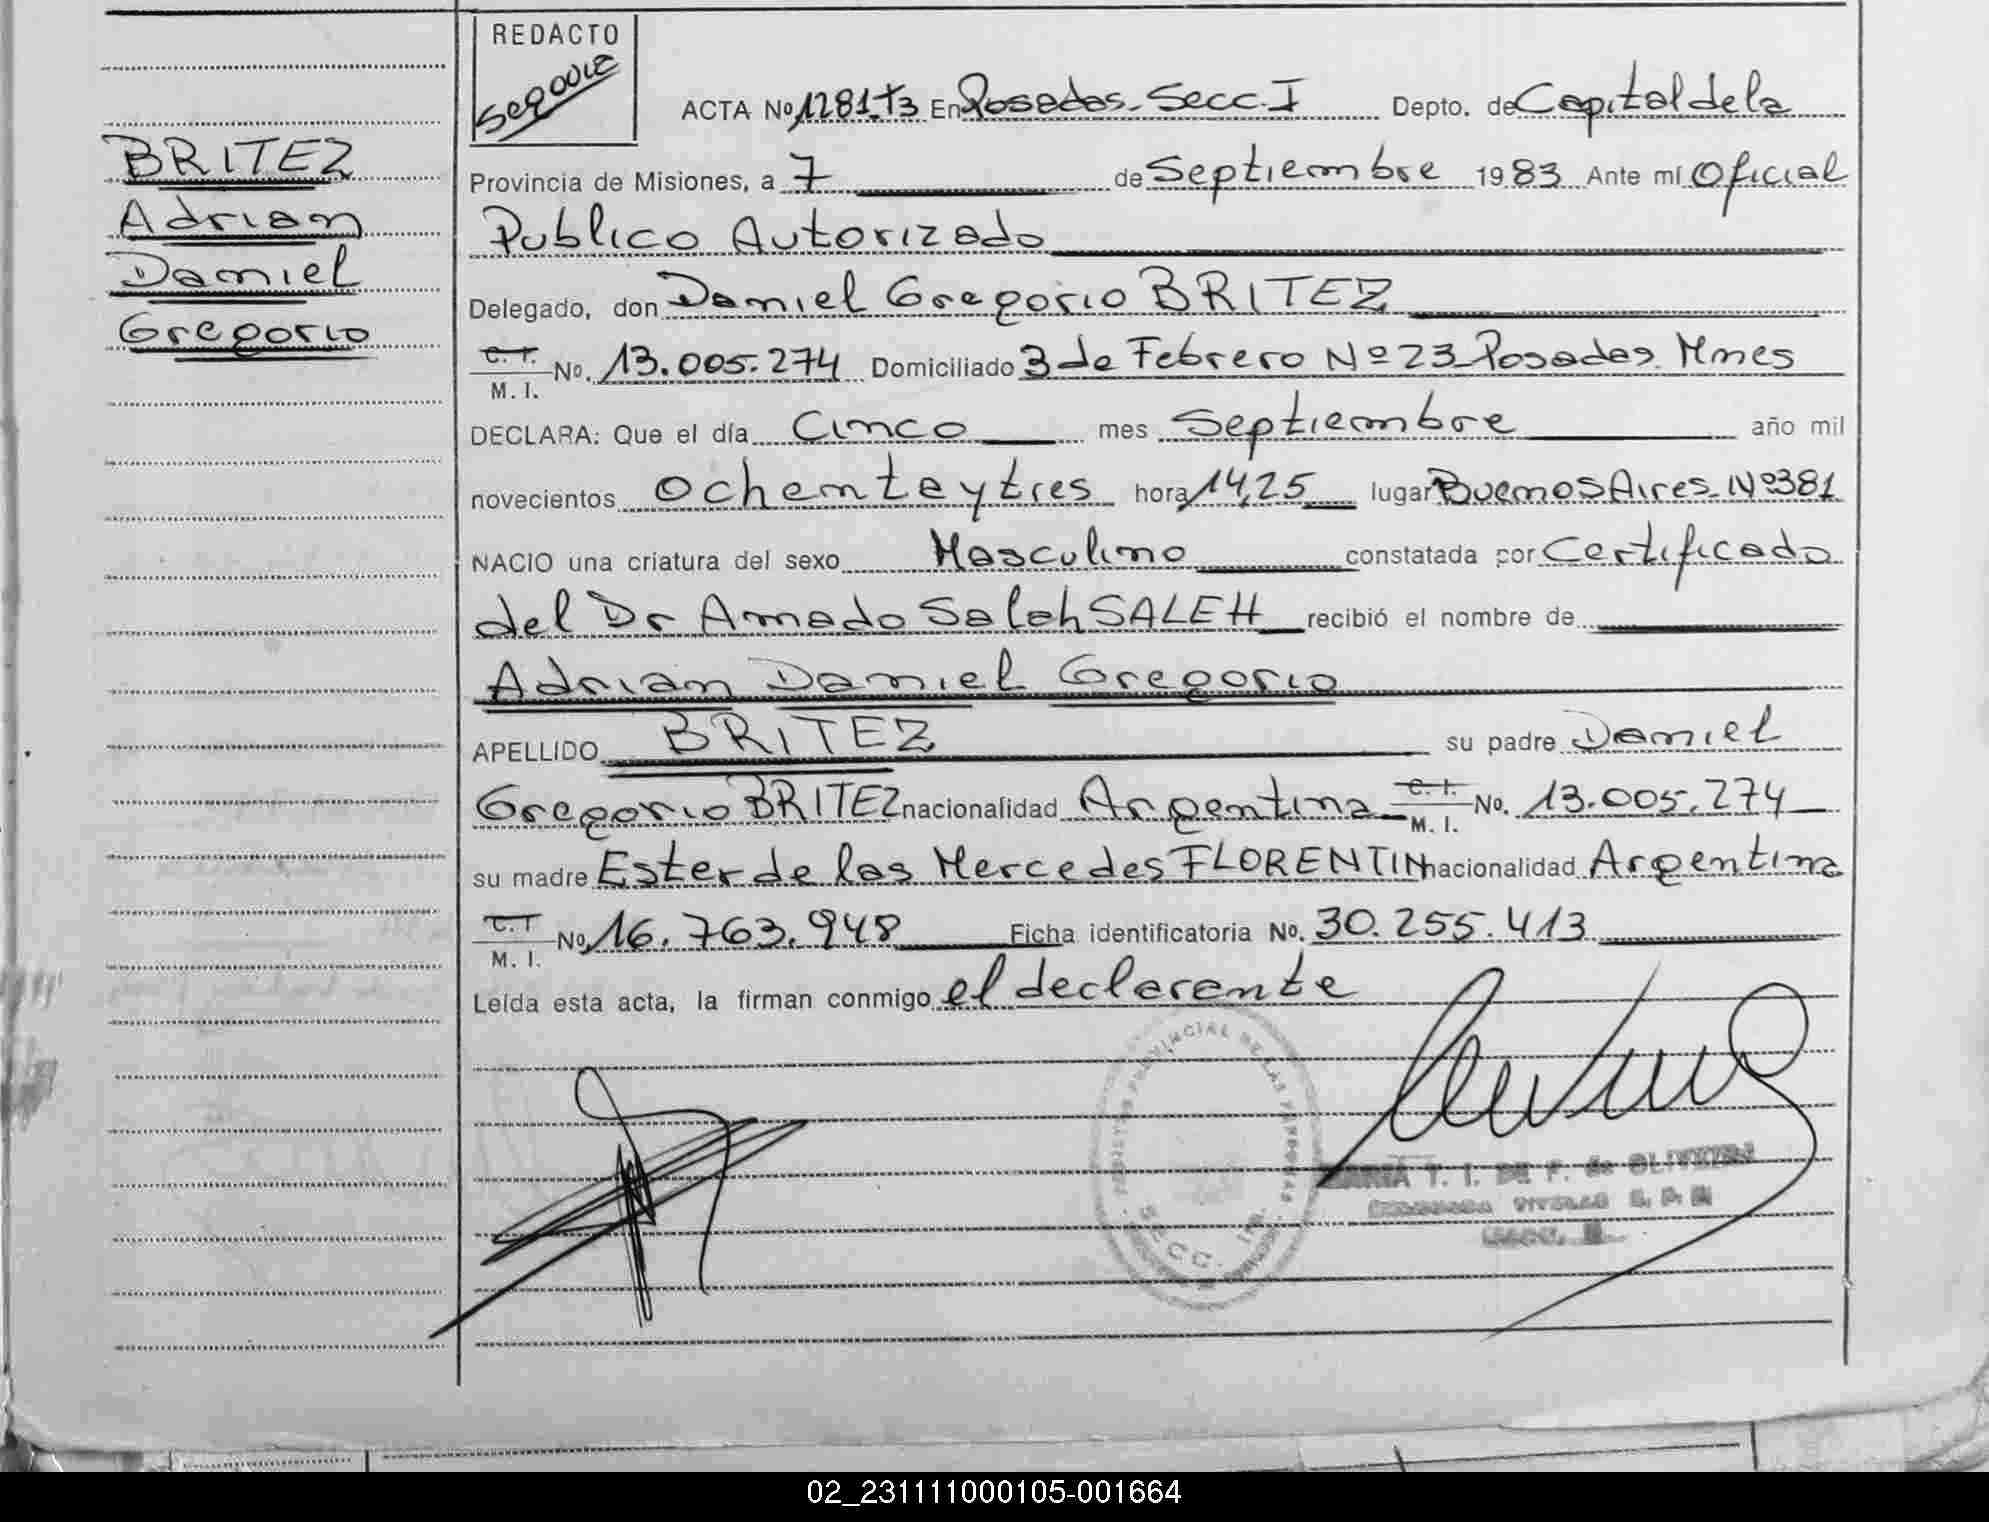 REDACTO
Segovie
ACTA No 1281 T3 En Posadas. Secc. I Depto. de Capital de la
BRITEZ
Adrian
Daniel
Gregorio
Provincia de Misiones, a 7 de Septiembre 1983 Ante mí Oficial
Publico Autorizado
Delegado, don Daniel Gregorio BRITEZ
C. I.
M. I. No. 13.005.274 Domiciliado 3 de Febrero Nº 23 Posadas. Mnes
DECLARA: Que el día Cinco mes Septiembre año mil
novecientos Ochentaytres hora 14,25 lugar Buenos Aires. Nº381
NACIO una criatura del sexo Masculino constatada por Certificado
del Dr Amado Saleh SALEH recibió el nombre de
Adrian Daniel Gregorio
APELLIDO BRITEZ su padre Daniel
Gregorio BRITEZ nacionalidad Argentina C. I.
M. I. No. 13.005.274
su madre Ester de las Mercedes FLORENTIN nacionalidad Argentina
C. I
M. I. No 16.763.948 Ficha identificatoria No. 30.255.413
Leída esta acta, la firman conmigo el declarante
PROVINCIAL DE LAS PERSONAS
SECC. 1ra.
MARIA T. I. DE F. de OLIVEIRA
02_231111000105-001664